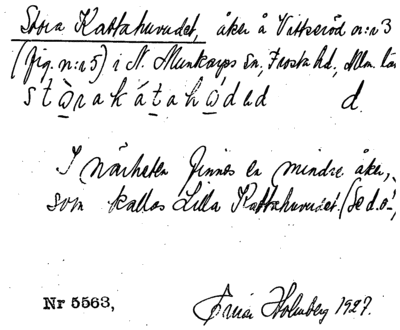 Stora Kattahuvudet, åker å Vittseröd n:r 3
(fig. n:r 5) i N. Munkarps sn, Frosta hd, Mlm. län
d.
I närheten finnes en mindre åker,
som kallas Lilla Kattahuvudet. (Se d.o.,
Nr 5563,
Holmberg 1927.